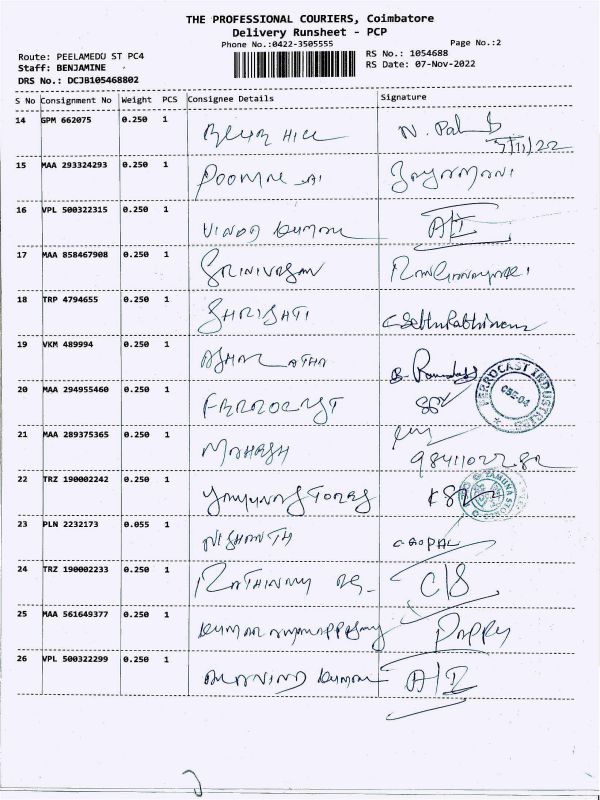 THE PROFESSIONAL COURIERS, Coimbatore
Delivery Runsheet - PCP
Phone No.:0422-3505555
Page No.:2
Route: PEELAMEDU ST PC4
RS No.: 1054688
Staff: BENJAMINE
RS Date: 07-Nov-2022
DRS No.: DCJB105468802
S No Consignment No Weight PCS Consignee Details Signature
14 GPM 662075 0.250 1
7/11/22
15 MAA 293324293 0.250 1
16 VPL 500322315 0.250 1 VINOD KUMAR A/I
17 MAA 858467908 0.250 1 SRINIVASAN
18 TRP 4794655 0.250 1
19 VKM 489994 0.250 1
20 MAA 294955460 0.250 1 FERROCAST
FERROCAST INDUSTRIES
CBE-04
21 MAA 289375365 0.250 1 MAHASH
22 TRZ 190002242 0.250 1 YAMUNA STORES
YAMUNA STORES
23 PLN 2232173 0.055 1 NISHANTH GOPAL
24 TRZ 190002233 0.250 1 C/S
25 MAA 561649377 0.250 1 Pappy
26 VPL 500322299 0.250 1 ARAVIND KUMAR A/I